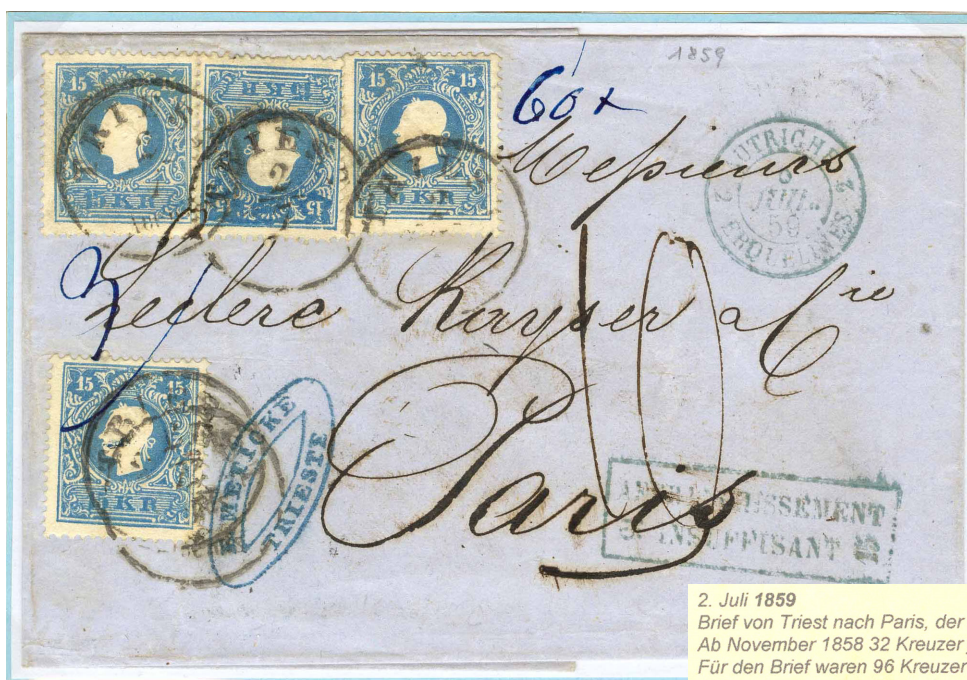 1859
15 15
15 KR
15 KR
15 15
KR
60 x
Messieurs
AUTRICHE
2 JUIL. 2
59
ERQUELINES
Leclerc Kayser & Cie
15 15
KR
TRIESTE
Paris
10
AFFRANCHISSEMENT
INSUFFISANT
2. Juli 1859
Brief von Triest nach Paris, der
Ab November 1858 32 Kreuzer
Für den Brief waren 96 Kreuzer